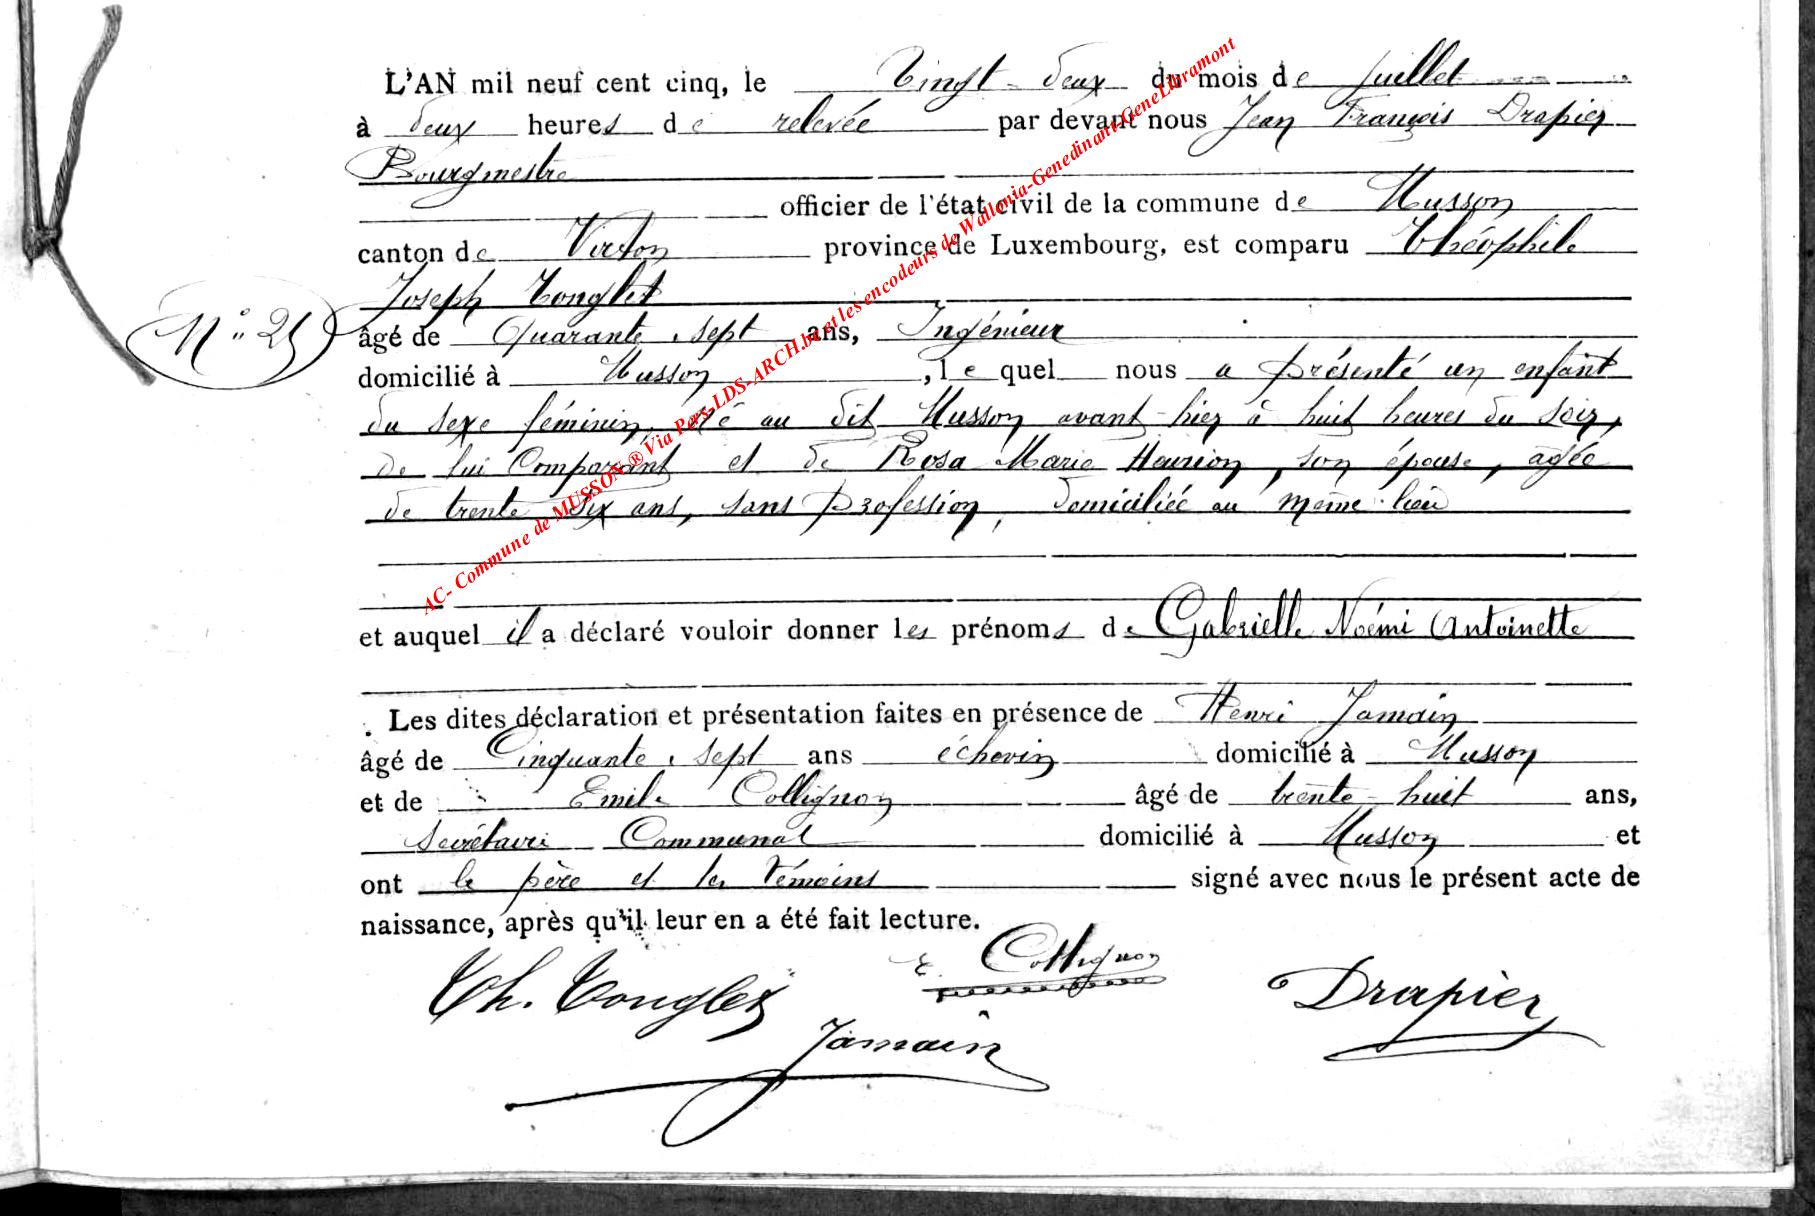 L'AN mil neuf cent cinq, le Vingt-deux du mois de juillet
à deux heures de relevée par devant nous Jean François Drapier
Bourgmestre
officier de l'état civil de la commune de Musson
canton de Virton province de Luxembourg, est comparu Théophile
Joseph Tonglet
N° 25
âgé de Quarante-sept ans, Ingénieur
domicilié à Musson, lequel nous a présenté un enfant
du sexe féminin, né au dit Musson avant-hier à huit heures du soir,
de lui Comparant et de Rosa Marie Henrion, son épouse, agée
de trente six ans, sans profession, domiciliée au même lieu
et auquel il a déclaré vouloir donner les prénoms de Gabrielle Noémi Antoinette
Les dites déclaration et présentation faites en présence de Henri Jamain
âgé de Cinquante-sept ans échevin domicilié à Musson
et de Emile Collignon âgé de trente-huit ans,
Secrétaire Communal domicilié à Musson et
ont le père et les témoins signé avec nous le présent acte de
naissance, après qu'il leur en a été fait lecture.
Th. Tonglet E. Collignon Drapier
Jamain
AC- Commune de MUSSON ® Via Pers-LDS-ARCH.be et les encodeurs de Wallonia-Genedinant-GeneLibramont